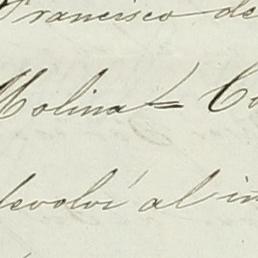 Francisco de
Molina = Co
devolví al in